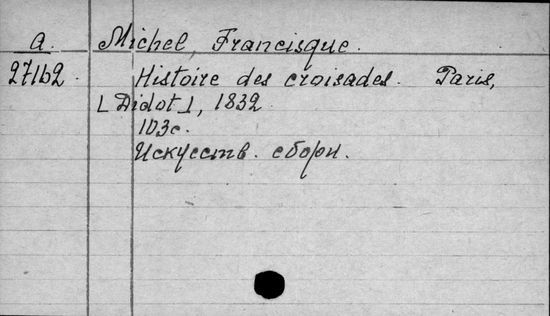 a. Michel, Francisque.
27162. Histoire des croisades. Paris,
[Didot], 1832
103 c.
Искусств. сборн.